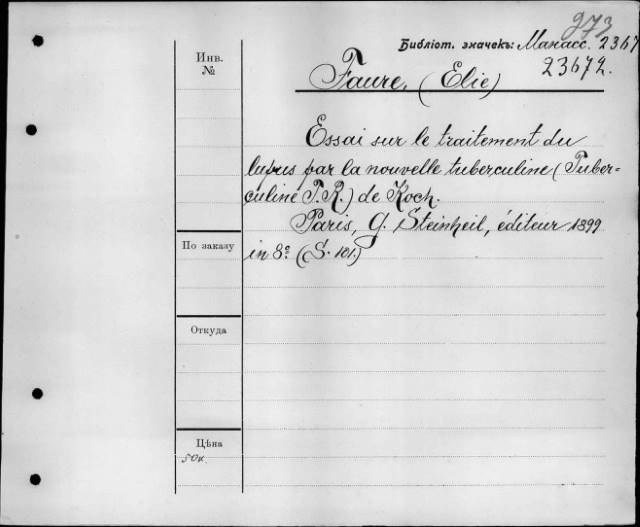 273
Библіот. значекъ: Манасс. 2367
23672.
Инв.
№
Faure, (Elie)
Essai sur le traitement du
lupus par la nouvelle tuberculine (Tuber=
culine T. R.) de Koch.
Paris, G. Steinheil, éditeur 1899
in 8º (S. 101.)
По заказу
Откуда
Цѣна
50к.